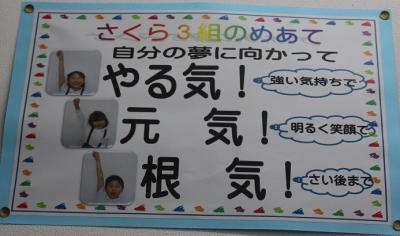 さくら３組のめあて
自分の夢に向かって
やる気！ 強い気持ちで
元　気！ 明るく笑顔で
根　気！ さい後まで